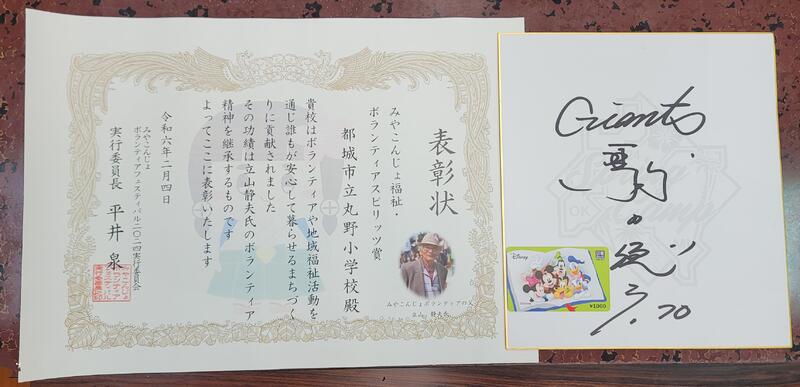 表彰状
みやこんじょ福祉・
ボランティアスピリッツ賞
都城市立丸野小学校殿
貴校はボランティアや地域福祉活動を
通じ誰もが安心して暮らせるまちづく
りに貢献されました
その功績は立山静夫氏のボランティア
精神を継承するものです
よってここに表彰いたします
令和六年二月四日
みやこんじょ
ボランティアフェスティバル二〇二四実行委員会
実行委員長 平井 泉
みやこんじょボランティアの父
Giants
70
Disney
¥1000